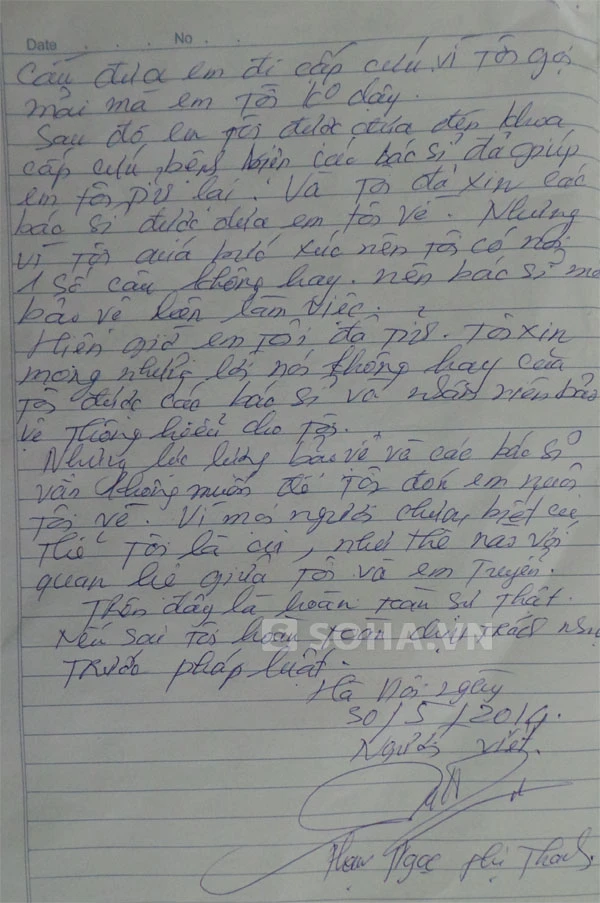 Date . . . . No . .
Cầu đưa em đi cấp cứu vì tôi gọi
mãi mà em tôi ko dậy.
Sau đó em tôi được đưa đến khoa
cấp cứu bệnh viện các bác sĩ đã giúp
em tôi tỉnh lại. Và tôi đã xin các
bác sĩ được đưa em tôi về. Nhưng
vì tôi quá bức xúc nên tôi có nói
1 số câu không hay. nên bác sĩ mời
bảo vệ lên làm việc.
Hiện giờ em tôi đã tỉnh. Tôi xin
mong những lời nói không hay của
tôi được các bác sĩ và nhân viên bảo
vệ thông hiểu cho tôi.
Nhưng lực lượng bảo vệ và các bác sĩ
vẫn không muốn để tôi đón em nuôi
tôi về. Vì mọi người chưa biết cụ
thể tôi là ai, như thế nào với
quan hệ giữa tôi và em Truyền.
Trên đây là hoàn toàn sự thật.
Nếu sai tôi hoàn toàn chịu trách nhiệm
trước pháp luật.
SOHA.VN
Hà Nội ngày
30/5/2014.
Người viết.
Ngọc Thanh